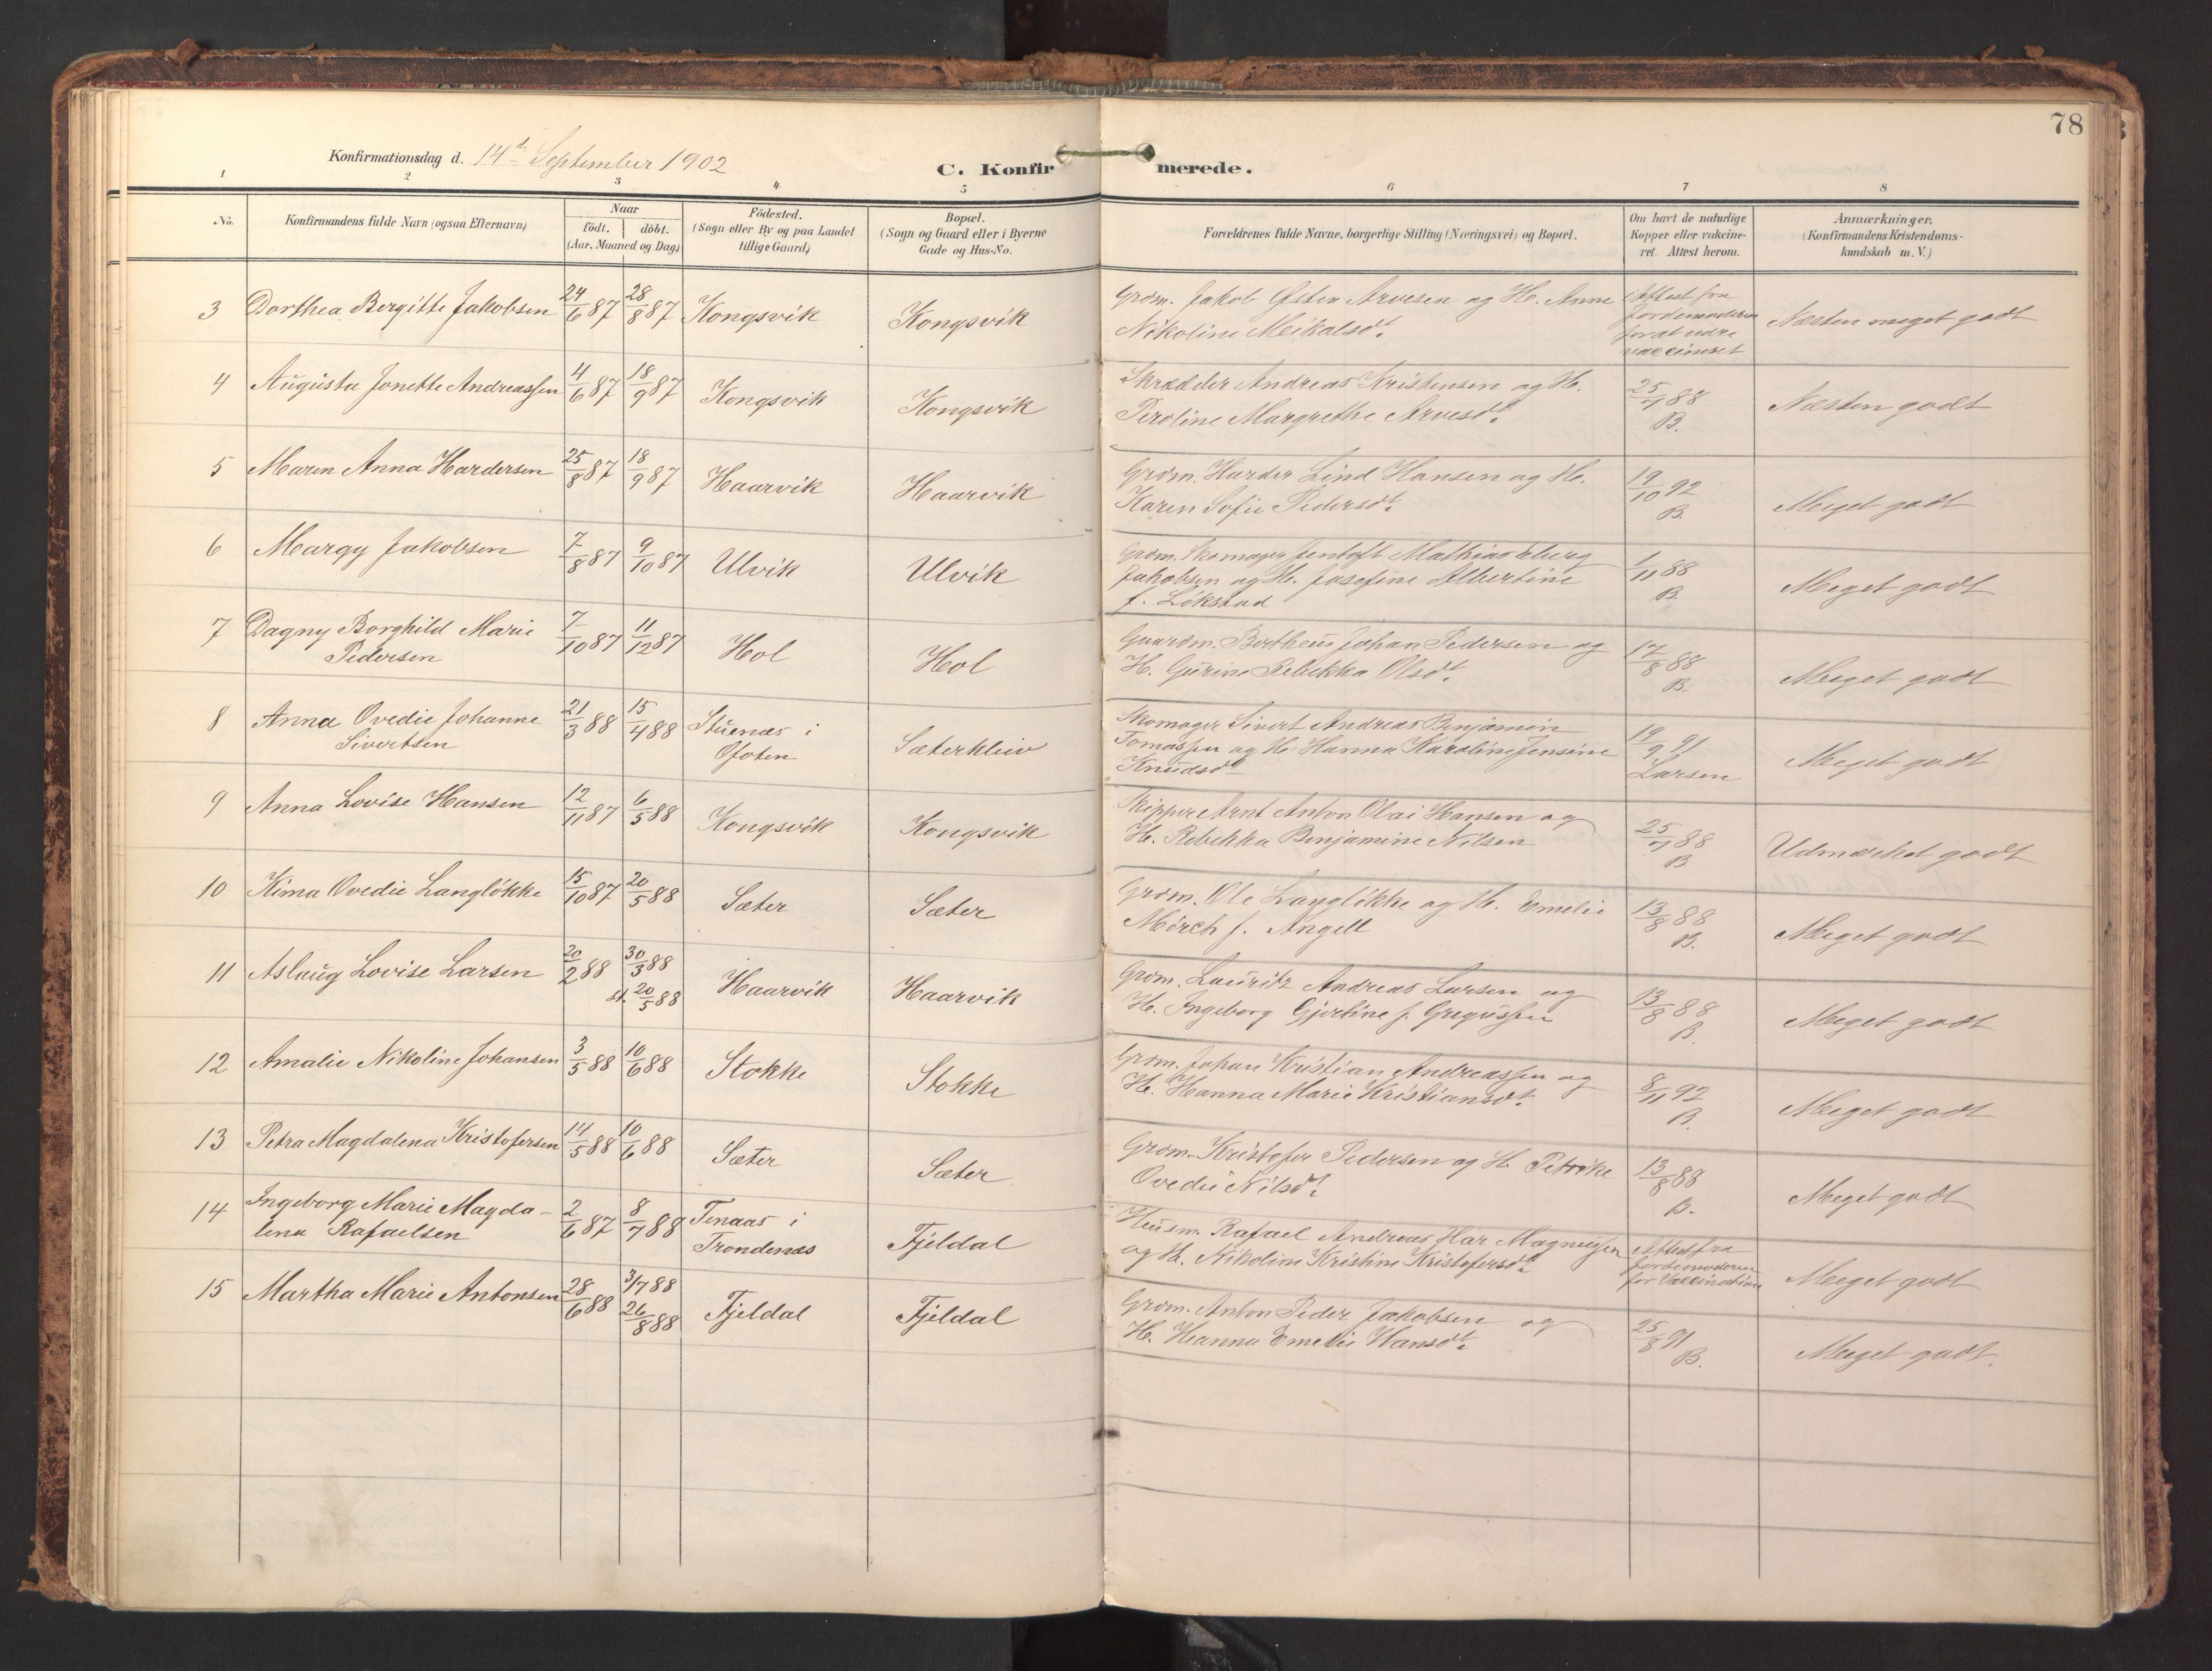 78
Konfirmationsdag d. 14de September 1902
C. Konfirmerede.
1 2 3 4 5 6 7 8
No. Konfirmandens fulde Navn (ogsaa Efternavn) Naar födt. döbt. (Aar, Maaned og Dag) Födested. (Sogn eller By og paa Landet tillige Gaard) Bopæl. (Sogn og Gaard eller i Byerne Gade og Hus-No. Forældrenes fulde Navne, borgerlige Stilling (Næringsvei) og Bopæl. Om havt de naturlige Kopper eller vakcineret. Attest herom. Anmærkninger. (Konfirmandens Kristendomskundskab m. V.)
3 Dorthea Bergitte Jakobsen 24/6 87 28/8 87 Kongsvik Kongsvik Grdm. Jakob Østen Arvesen og H. Anne Attest fra
Nikoline Meikalsdt. Jordemoderen for at være vaccineret Næsten meget godt
4 Augusta Jonette Andreassen 4/6 87 18/9 87 Kongsvik Kongsvik Skrædder Andreas Kristensen og H.
Peroline Margrethe Arvesdt. 25/7 88 B. Næsten godt
5 Maren Anna Hardersen 25/8 87 18/9 87 Haarvik Haarvik Grdm. Harder Lind Hansen og H.
Karen Sofie Pedersdt. 19/10 92 B. Meget godt
6 Margy Jakobsen 7/8 87 9/10 87 Ulvik Ulvik Grdm. Skomager Jentoft Mathias
Jakobsen og H. Josefine Albertine
f. Lökstad 1/11 88 B. Meget godt
7 Dagny Borghild Marie
Pedersen 7/10 87 11/12 87 Hol Hol Gaardm. Bertheus Johan Pedersen og
H. Gurine Rebekka Olsdt. 17/8 88 B. Meget godt
8 Anna Ovedie Johanne
Sivertsen 21/3 88 15/4 88 Stuenæs i
Ofoten Sæterkleiv Skomager Sivert Andreas Benjamin
Tomassen og H. Hanna Karoline Jensine
Knudsdt. 19/9 91 Larsen Meget godt
9 Anna Lovise Hansen 12/11 87 6/5 88 Kongsvik Kongsvik Skipper Arnt Anton Olai Hansen og
H. Rebekka Benjamine Nilsen 25/7 88 B Udmærket godt
10 Kima Ovedie Langlökke 15/10 87 20/5 88 Sæter Sæter Grdm. Ole Langlökke og H. Emelie
Mörch f. Angell 13/8 88 B. Meget godt
11 Aslaug Lovise Larsen 20/2 88 30/3 88
st. 20/5 88 Haarvik Haarvik Grdm. Lauritz Andreas Larsen og
H. Ingeborg Gjertine f. Gregussen 13/8 88 B. Meget godt
12 Amalie Nikoline Johansen 3/5 88 10/6 88 Stokke Stokke Grdm. Johan Kristian Andreassen og
H. Hanna Marie Kristiansdt. 8/11 92 B. Meget godt
13 Petra Magdalena Kristofersen 14/5 88 10/6 88 Sæter Sæter Grdm. Kristofer Pedersen og H. Petrike
Ovedie Nilsdt. 13/8 88 B. Meget godt
14 Ingeborg Marie Magda-
lena Rafaelsen 2/6 87 8/7 88 Tenaas i
Trondenæs Fjeldal Husm. Rafael Andreas Har Magnussen
og H. Nikoline Kristine Kristofersdt. Attest fra Jordemoderen for Vaccination Meget godt
15 Martha Marie Antonsen 28/6 88 3/7 88
26/8 88 Fjeldal Fjeldal Grdm. Anton Peder Jakobsen og
H. Hanna Emelie Hansdt. 25/8 91 B. Meget godt.